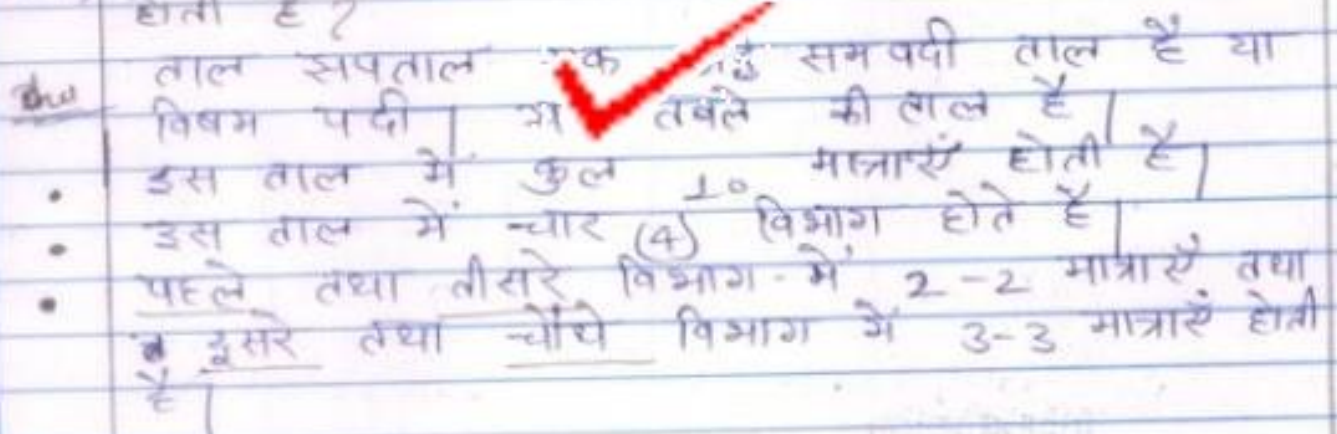 होता है?
Ans ताल झपताल एक समपदी ताल है या
विषम पदी। तबले की ताल है।
इस ताल में कुल 10 मात्राएँ होती है।
• इस ताल में चार (4) विभाग होते है।
• पहले तथा तीसरे विभाग में 2-2 मात्राएँ तथा
• दूसरे तथा चौथे विभाग में 3-3 मात्राएँ होती
है।